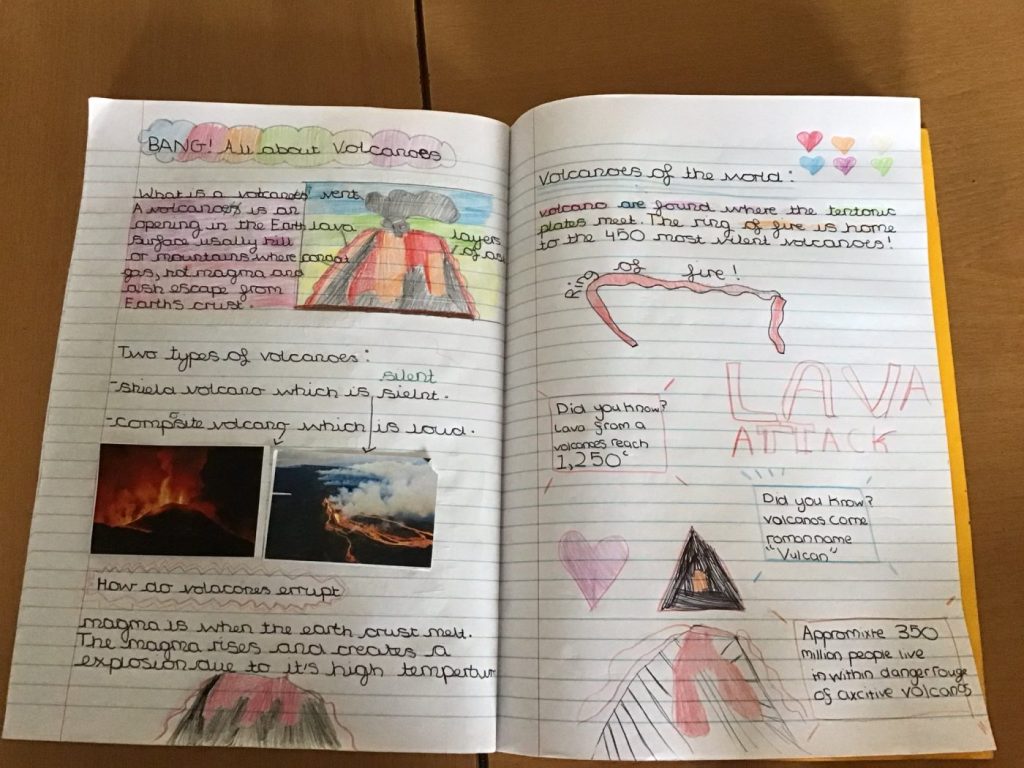 BANG! All about Volcanoes
What is a volcanoes'
A volcanoes is an
opening in the Earth
surface usally hill
or mountains where
gas, hot magma and
ash escape from
Earth's crust.
vent
lava
layers
of ash
Two types of volcanoes:
silent
-shield volcano which is sielnt.
-compsite volcano which is loud.
o
How do volacones errupt
magma is when the earth crust melt.
The magma rises and creates a
explosion due to it's high tempertur
Volcanoes of the world:
volcano are found where the tentonic
plates meet. The ring of fire is home
to the 450 most vilent volcanoes!
Ring of fire!
LAVA
ATTACK
Did you know?
Lava from a
volcanoes reach
1,250°c
Did you know?
volcanos come
roman name
"Vulcan"
Appromixte 350
million people live
in within danger rouge
of axcitive volcanos